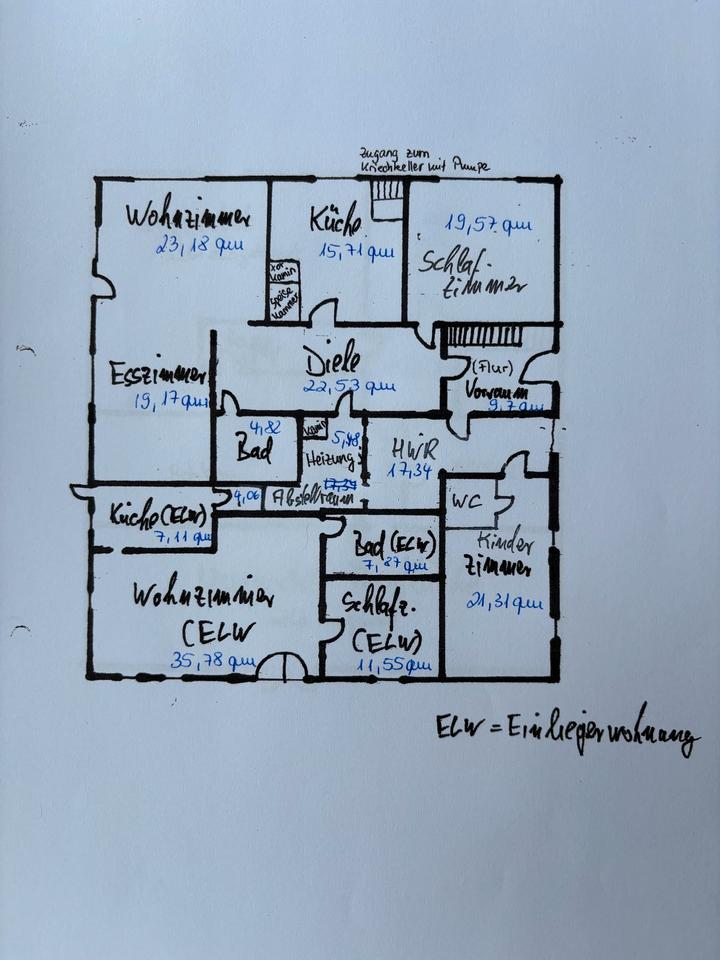 Zugang zum
Kriechkeller mit Pumpe
Wohnzimmer
23,18 qm
Küche
15,71 qm
19,57 qm
Schlaf-
zimmer
Kamin
Speise
kammer
Esszimmer
19,17 qm
Diele
22,53 qm
(Flur)
Vorraum
9,7 qm
4,82
Bad
Kamin
5,48
Heizung
17,34
HWR
17,34
4,06
Abstellraum
WC
Küche (ELW)
7,11 qm
Bad (ELW)
7,87 qm
Kinder
zimmer
21,31 qm
Wohnzimmer
(ELW
35,78 qm
Schlafz.
(ELW)
11,55 qm
ELW = Einliegerwohnung